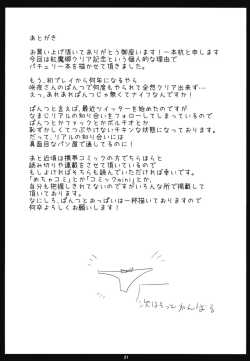 あとがき
お買い上げ頂いてありがとう御座います!一本杭と申します
今回は紅魔郷クリア記念という個人的な理由で
パチェリー本を描かせて頂きました。
もう、初プレイから何年になるやら
咲夜さんのぱんつで何度もやられて全然クリア出来ず…
えっ、あれあれぱんつじゃ無くてナイフなんですか!
ぱんつと言えば、最近ツイッターを始めたのですが
なまじリアルの知り合いをフォローしてしまっているので
ぱんつとかファックとかポルチオとか
恥ずかしくてつぶやけないチキンな状態になっております。
だって、リアルの知り合いには
真面目なパン屋で通してるのに!
あと近頃は携帯コミックの方でちらほらと
読み切りや連載をさせて頂いているので
もしよければそちらも読んでいただければ幸いです。
「めちゃコミ」とか「コミックmini」とか、
自分も把握しきれてないのですがいろんな所で掲載して
頂いております。
なにしろ、ぱんつとおっぱいは一杯描いておりますので
何卒よろしくお願いします!
次はもっとがんばる
21